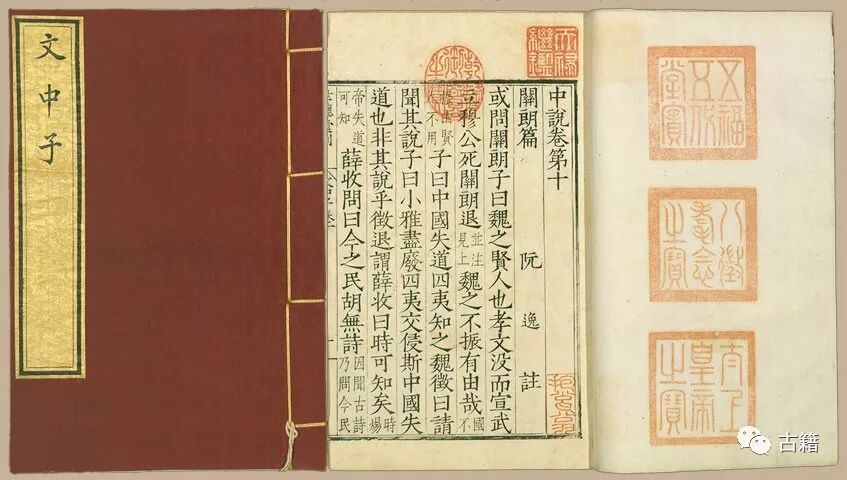 文中子
中說卷第十
關朗篇 阮逸註
或問關朗子曰魏之賢人也孝文没而宣武
立穆公死關朗退並注見上魏之不振有由哉國不
由賢不用子曰中國失道四夷知之魏徵曰請
聞其說子曰小雅盡廢四夷交侵斯中國失
道也非其說乎徵退謂薛收曰時可知矣時楊
帝失道可知薛收問曰今之民胡無詩因聞古詩乃問今民
天祿繼鑑
五福五代堂寶
八徵耄念之寶
太上皇帝之寶
古籍